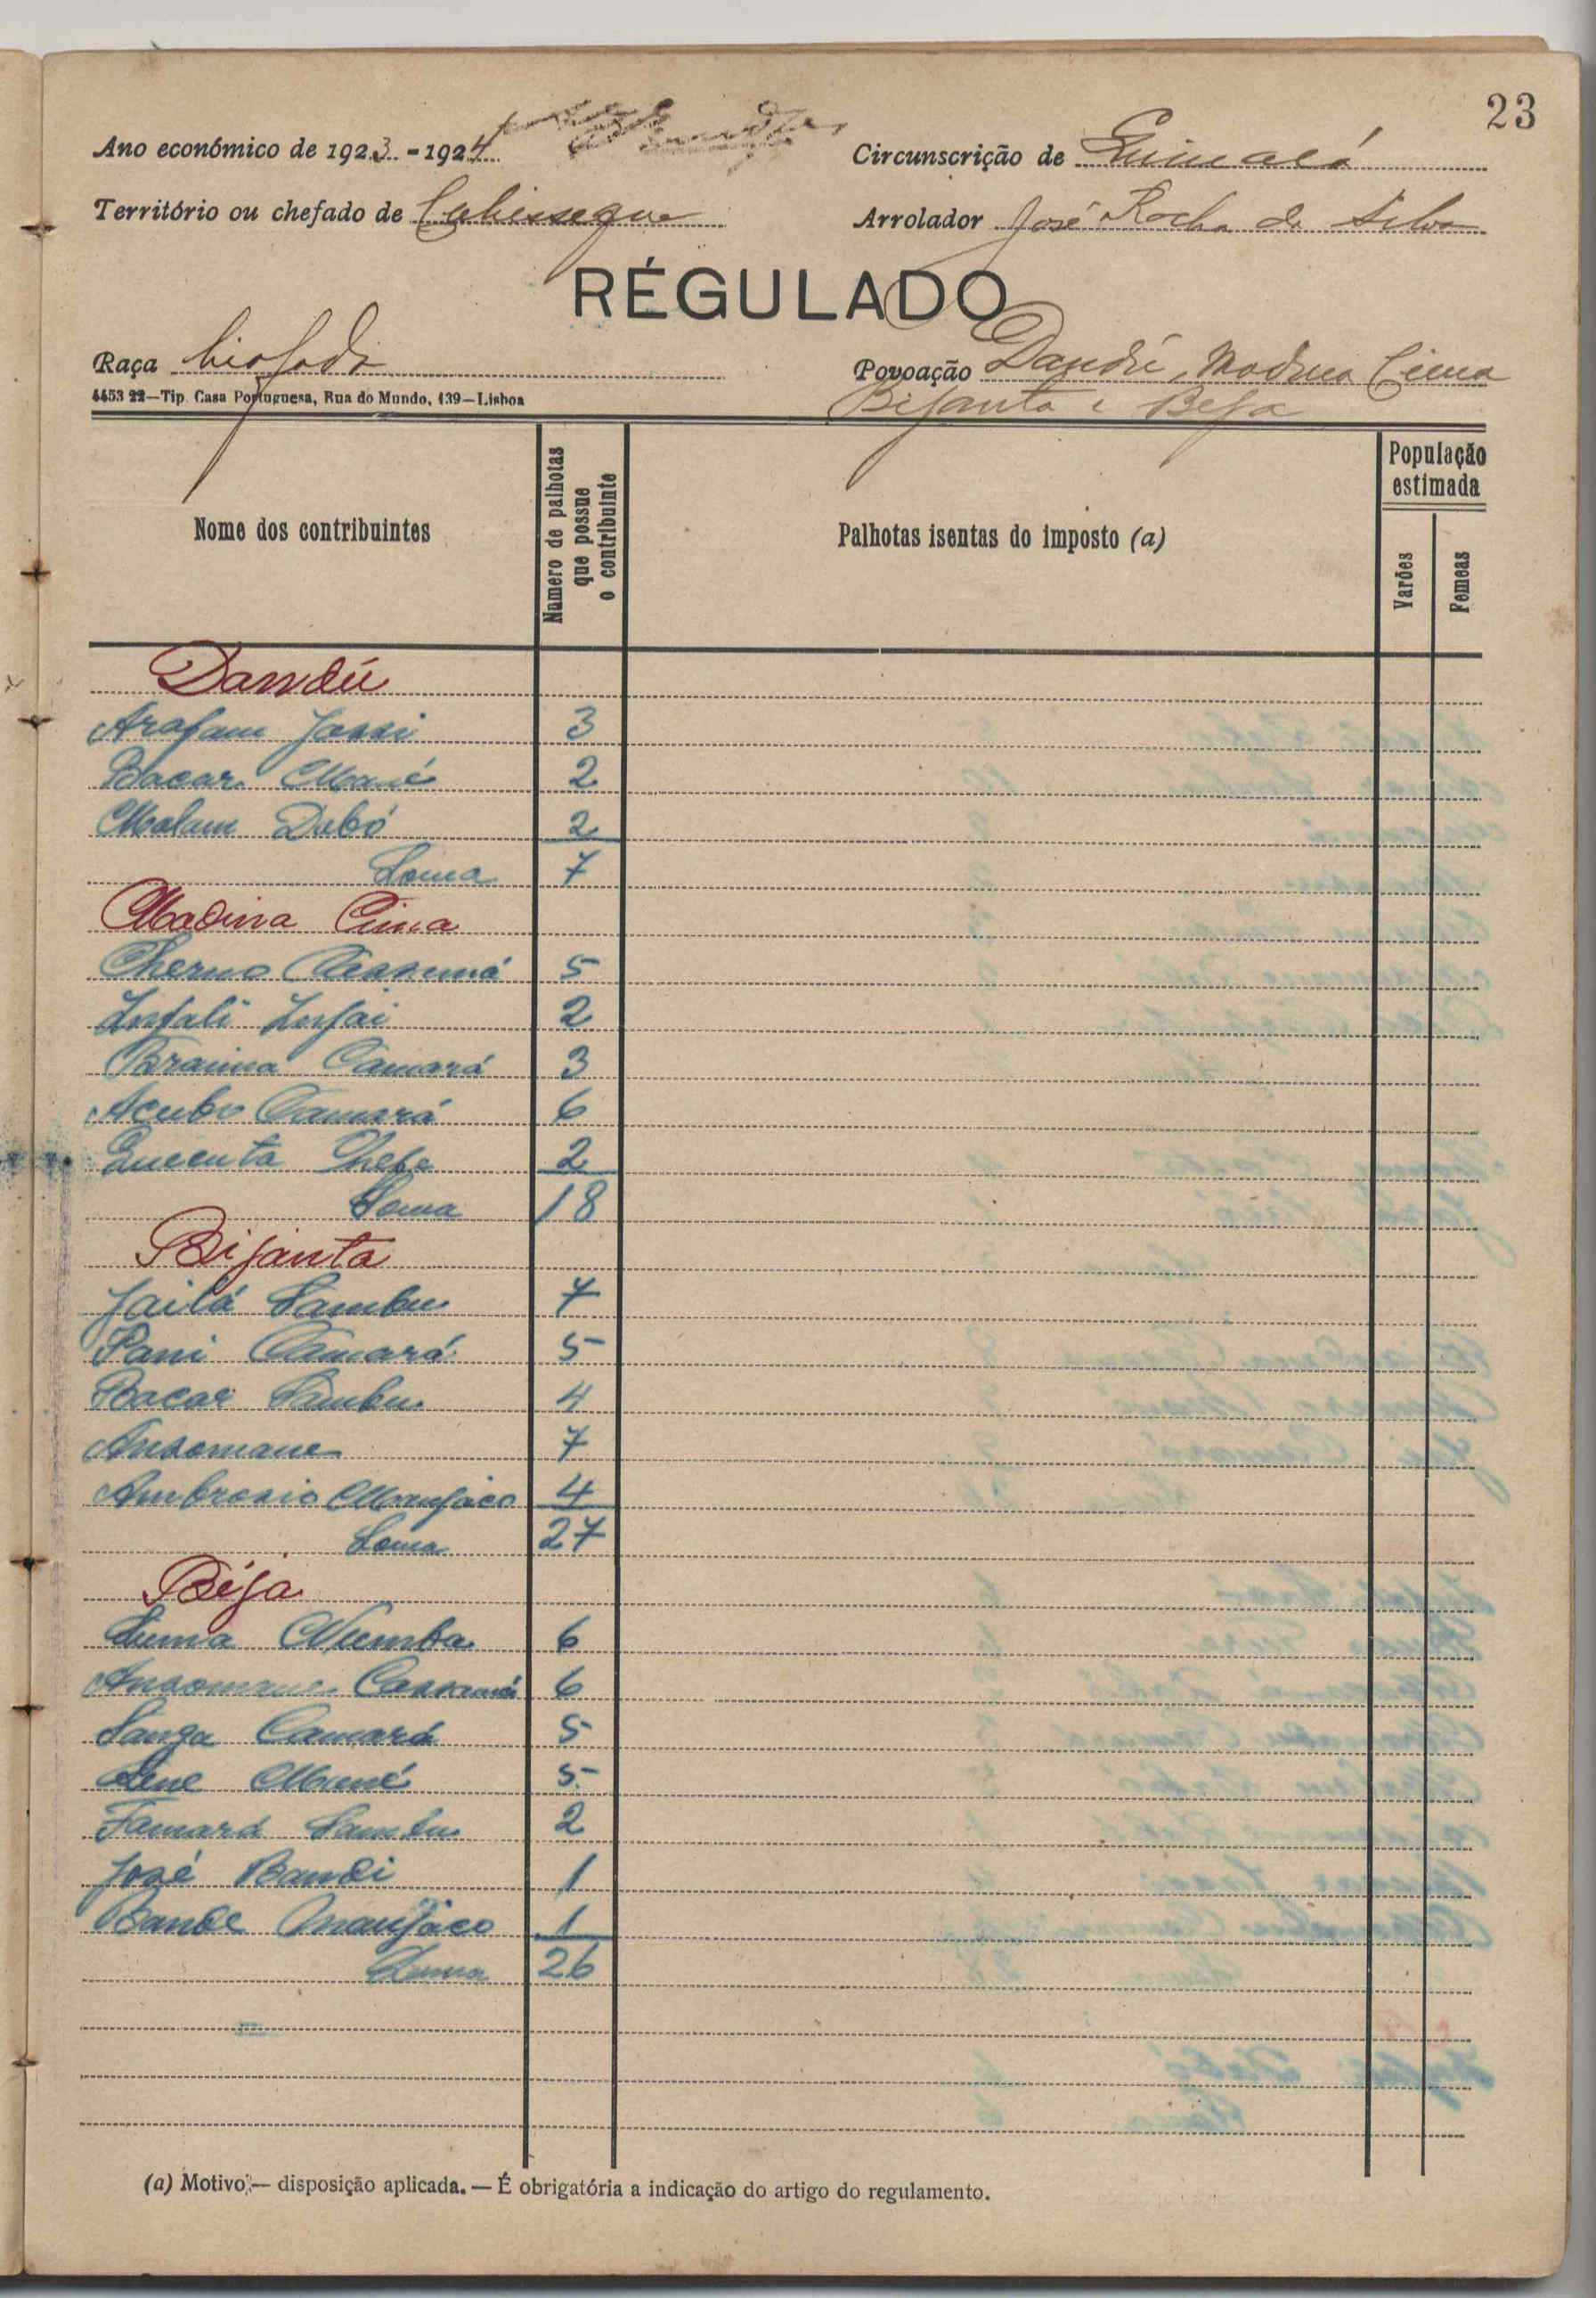 23
Ano económico de 1923 - 1924 Circunscrição de
Território ou chefado de Cubisseque Arrolador José Rocha da Silva
RÉGULADO
Raça biafada Povoação Dandú, Madina Cima
Bijante e Beja
4453 22—Tip. Casa Portuguesa, Rua do Mundo, 139—Lisboa
Nome dos contribuintes
Numero de palhotas que possue o contribuinte
Palhotas isentas do imposto (a)
População estimada
Varões
Femeas
Dandú
Arafam Jassi 3
Bacar Mané 2
Malam Dabó 2
Soma 7
Madina Cima
Cherno Cassamá 5
Infali Infai 2
Braima Camará 3
Acubo Camará 6
Quecuta Chefe 2
Soma 18
Bijante
Jailá Sambu 7
Sani Camará 5
Bacar Sambu 4
Ansomane 7
Ambrosio Manjaco 4
Soma 27
Béja
Suma Numba 6
Ansomane Cassamá 6
Sanga Camará 5
Sene Mané 5
Famará Sambu 2
José Bandi 1
Bande Manjaco 1
Soma 26
(a) Motivo — disposição aplicada. — É obrigatória a indicação do artigo do regulamento.